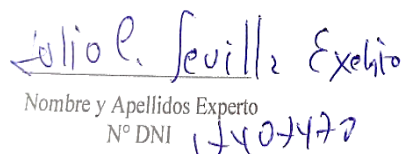 Julio C. Sevilla Exebio
Nombre y Apellidos Experto
N° DNI 17407470